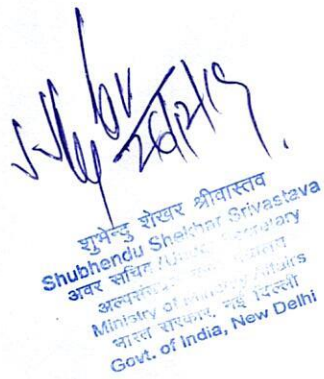 26/2/19
शुभेन्दु शेखर श्रीवास्तव
Shubhendu Shekhar Srivastava
अवर सचिव/Under Secretary
Ministry of Minority Affairs
भारत सरकार, नई दिल्ली
Govt. of India, New Delhi